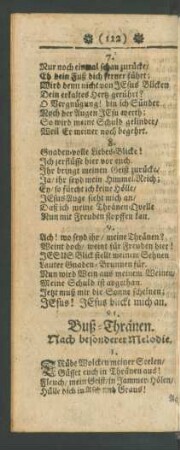 (112)
7.
Nur noch einmal schau zurücke/
Eh dein Fuß dich ferner führt:
Wird denn nicht von JEsus Blicken
Dein erkaltes Hertz gerührt?
O Vergnügung! bin ich Sünder
Noch der Augen JEsu werth:
So wird meine Schuld gelinder/
Weil Er meiner noch begehrt.
8.
Gnaden-volle Liebes-Blicke!
Ich zerflüsse hier vor euch.
Ihr bringt meinen Geist zurücke/
Ja/ ihr seyd mein Himmel-Reich;
Ey/ so fürcht ich keine Hölle/
JEsus Auge sieht mich an/
Daß ich meine Thränen-Qvelle
Nun mit Freuden stopffen kan.
9.
Ach! wo seyd ihr/ meine Thränen?
Weint doch/ weint für Freuden hier!
JESUS Blick stellt meinem Sehnen
Lauter Gnaden-Brunnen für.
Nun wird Wein aus meinem Weinen/
Meine Schuld ist abgethan.
Jetzt muß mir die Sonne scheinen;
JEsus! JEsus blickt mich an.
Buß-Thränen.
Nach besonderer Melodie.
1.
TRübe Wolcken meiner Seelen/
Güsset euch in Thränen aus!
Fleuch/ mein Geist/ in Jammer-Hölen/
Hülle dich in Asch und Graus!